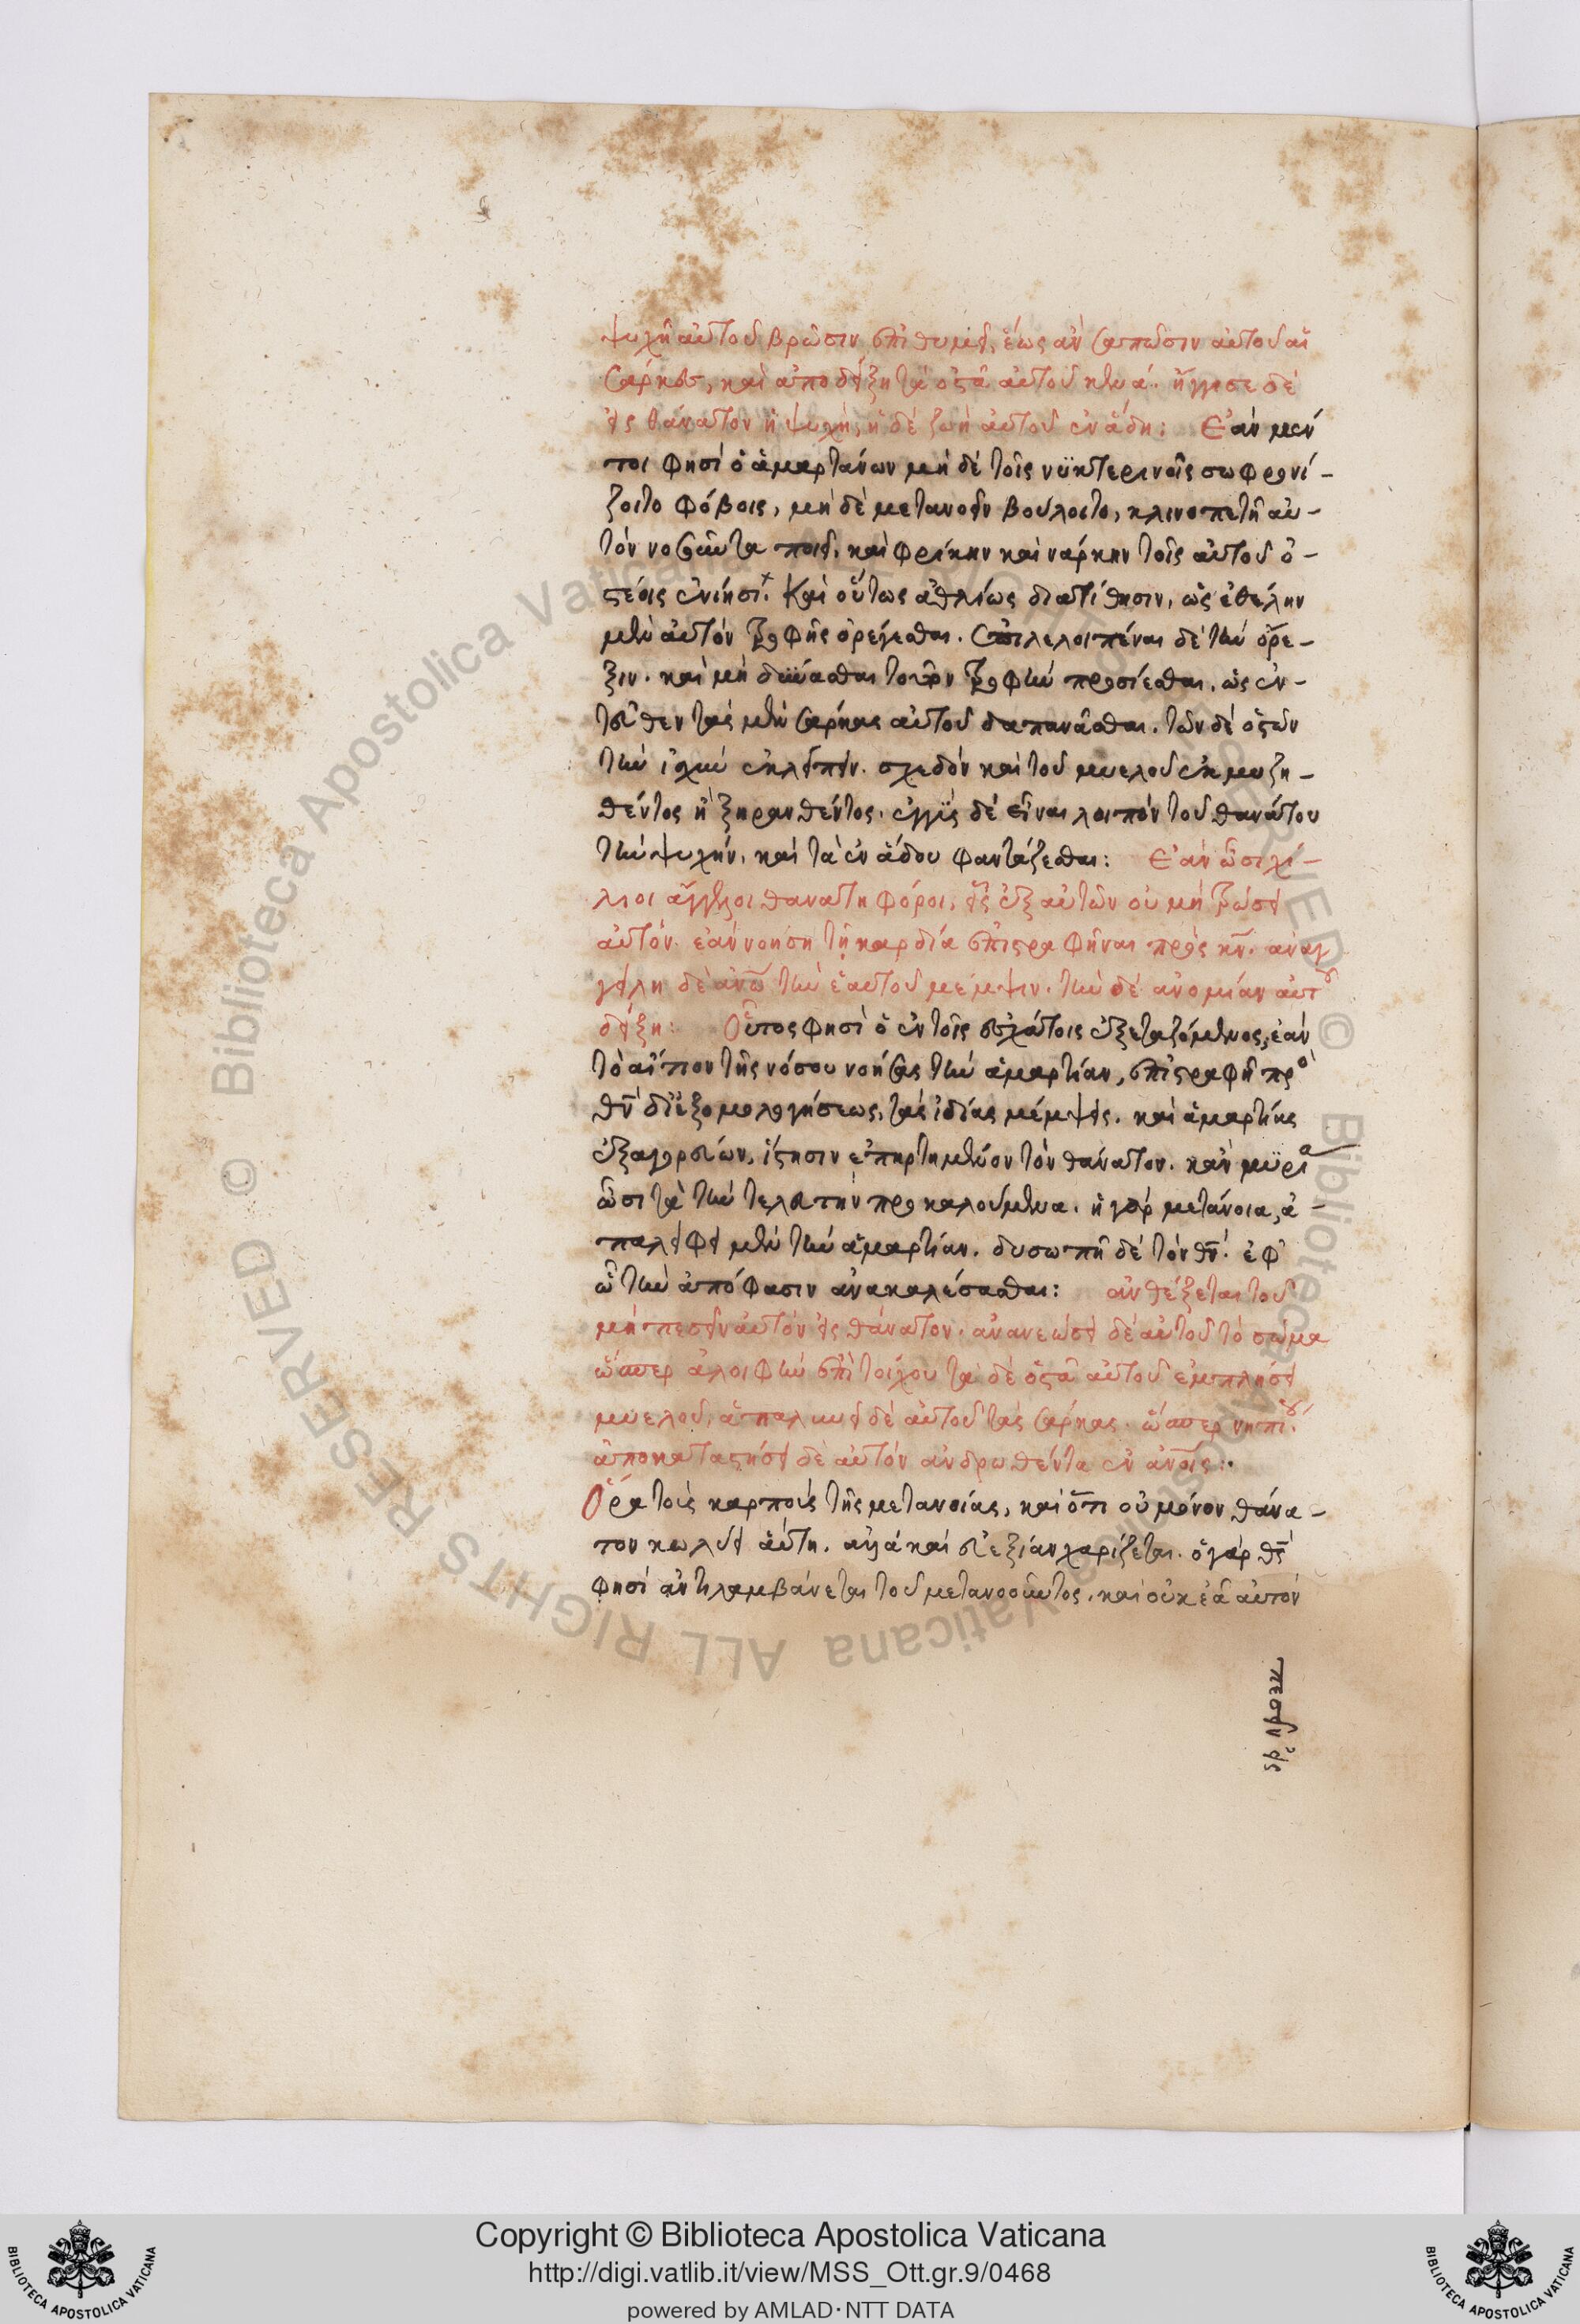 ψυχὴ αὐτοῦ βρῶσιν ἐπιθυμεῖ, ἕως ἂν σαπῶσιν αὐτοῦ αἱ
σάρκες, καὶ ἀποδείξῃ τὰ ὀστᾶ αὐτοῦ κενά. ἤγγισε δὲ
εἰς θάνατον ἡ ψυχὴ, ἡ δὲ ζωὴ αὐτοῦ ἐν ἅδῃ: Ἐὰν μέν
τοι φησὶ ὁ ἁμαρτάνων μὴ δὲ τοῖς νϋκτερινοῖς σωφρονί-
ζοιτο φόβοις, μὴ δὲ μετανοεῖν βούλοιτο, κλινοπετῆ αὐ-
τὸν νοσοῦντα ποιεῖ, καὶ φρίκην καὶ νάρκην τοῖς αὐτοῦ ὀ-
στέοις ἐνίησι. Καὶ οὕτως ἀθλίως διατίθησιν, ὡς ἐθέλην
μὲν αὐτὸν τροφῆς ὀρέγεσθαι. ἐπιλελοιπέναι δὲ τὴν ὄρε-
ξιν. καὶ μὴ δύνασθαι τὸ παρὸν τροφὴν προσίεσθαι, ὡς ἐν-
τεῦθεν τὰς μὲν σάρκας αὐτοῦ δαπανᾶσθαι. τῶν δὲ ὀστῶν
τὴν ἰσχὺν ἐκλείπειν. σχεδὸν καὶ τοῦ μυελοῦ ἐκμυζη-
θέντος ἢ ξηρανθέντος. ἐγγὺς δὲ εἶναι λοιπὸν τοῦ θανάτου
τὴν ψυχήν. καὶ τὰ ἐν ἅδου φαντάζεσθαι: Ἐὰν ὦσι χί-
λιοι ἄγγελοι θανατηφόροι, εἷς ἐξ αὐτῶν οὐ μὴ τρώσει
αὐτόν. ἐὰν νοήσῃ τῇ καρδίᾳ ἐπιστραφῆναι πρὸς κν̅. ἀναγ
γείλῃ δὲ ἀνω̅ τὴν ἑαυτοῦ μέμψιν. τὴν δὲ ἀνομίαν αὐτοῦ
δείξῃ: Οὗτος φησὶ ὁ ἐν τοῖς ἐσχάτοις ἐξεταζόμενος, ἐὰν
τὸ αἴτιον τῆς νόσου νοήσας τὴν ἁμαρτίαν, ἐπιστραφῆ πρὸ
θν̅ δι' ἐξομολογήσεως, τὰς ἰδίας μέμψεις. καὶ ἁμαρτίας
ἐξαγορεύων, ἵστησιν ἐπηρτημένον τὸν θάνατον. κἂν μϋρία
ὦσι τὰ τὴν τελευτὴν προκαλούμενα. ἡ γὰρ μετάνοια, ἀ-
παλείφει μὲν τὴν ἁμαρτίαν. δυσωπῆ δὲ τὸν θν̅. ἐφ'
ᾧ τὴν ἀπόφασιν ἀνακαλέσασθαι: ἀνθέξεται τοῦ
μὴ πεσεῖν αὐτὸν εἰς θάνατον. ἀνανεώσει δὲ αὐτοῦ τὸ σῶμα
ὥσπερ ἀλοιφὴν ἐπὶ τοίχου τὰ δὲ ὀστᾶ αὐτοῦ ἐμπλήσει
μυελοῦ, ἁπαλυνεῖ δὲ αὐτοῦ τὰς σάρκας. ὥσπερ νηπίου.
ἀποκαταστήσει δὲ αὐτὸν ἀνδρωθέντα ἐν ἀνοις̅:
Ὅρα τοὺς καρποὺς τῆς μετανοίας, καὶ ὅτι οὐ μόνον θάνα-
τον κωλύει αὕτη. ἀλλὰ καὶ εὐεξίαν χαρίζεται. ὁ γὰρ θς̅
φησὶ ἀντιλαμβάνεται τοῦ μετανοοῦντος. καὶ οὐκ ἐᾶ αὐτὸν